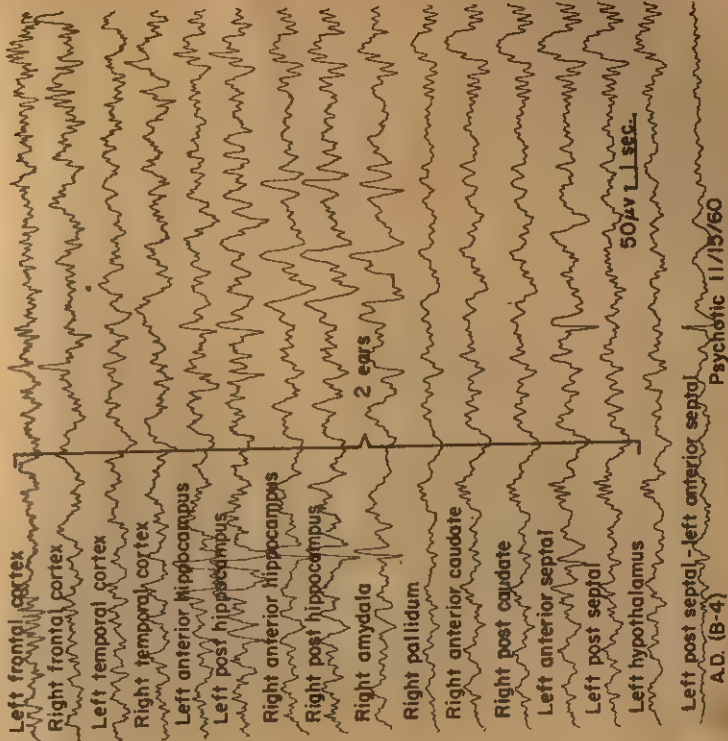 Left frontal cortex
Right frontal cortex
Left temporal cortex
Right temporal cortex
Left anterior hippocampus
Left post hippocampus
Right anterior hippocampus
Right post hippocampus
2 ears
Right amydala
Right pallidum
Right anterior caudate
Right post caudate
Left anterior septal
Left post septal
50μv 1 sec.
Left hypothalamus
Left post septal-left anterior septal
A.D. (B-4) Psychotic 11/15/60